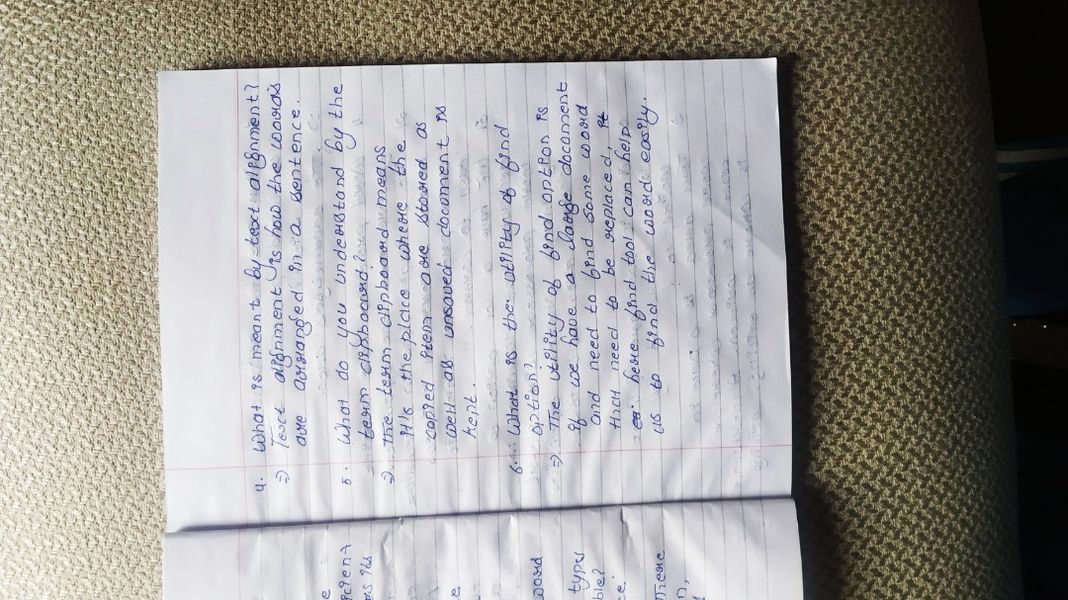 4. What is meant by text alignment?
=) Text alignment is how the words
are arranged in a sentence.
5. What do you understand by the
term clipboard?
=) the term clipboard means
It is the place where the
copied item are stored as
well as unsaved document is
kept.
6. What is the utility of find
option?
=) The utility of find option is
if we have a large document
and need to find some word
that need to be replaced, it
here find tool can help
us to find the word easily.
word
type
There